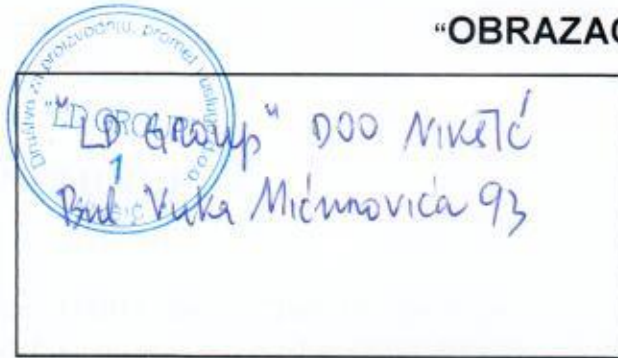 “OBRAZAC
Društvo za proizvodnju, promet i usluge d.o.o.
"LD GROUP"
1
"LD Group" DOO Nikšić
Bul Vuka Mićunovića 93